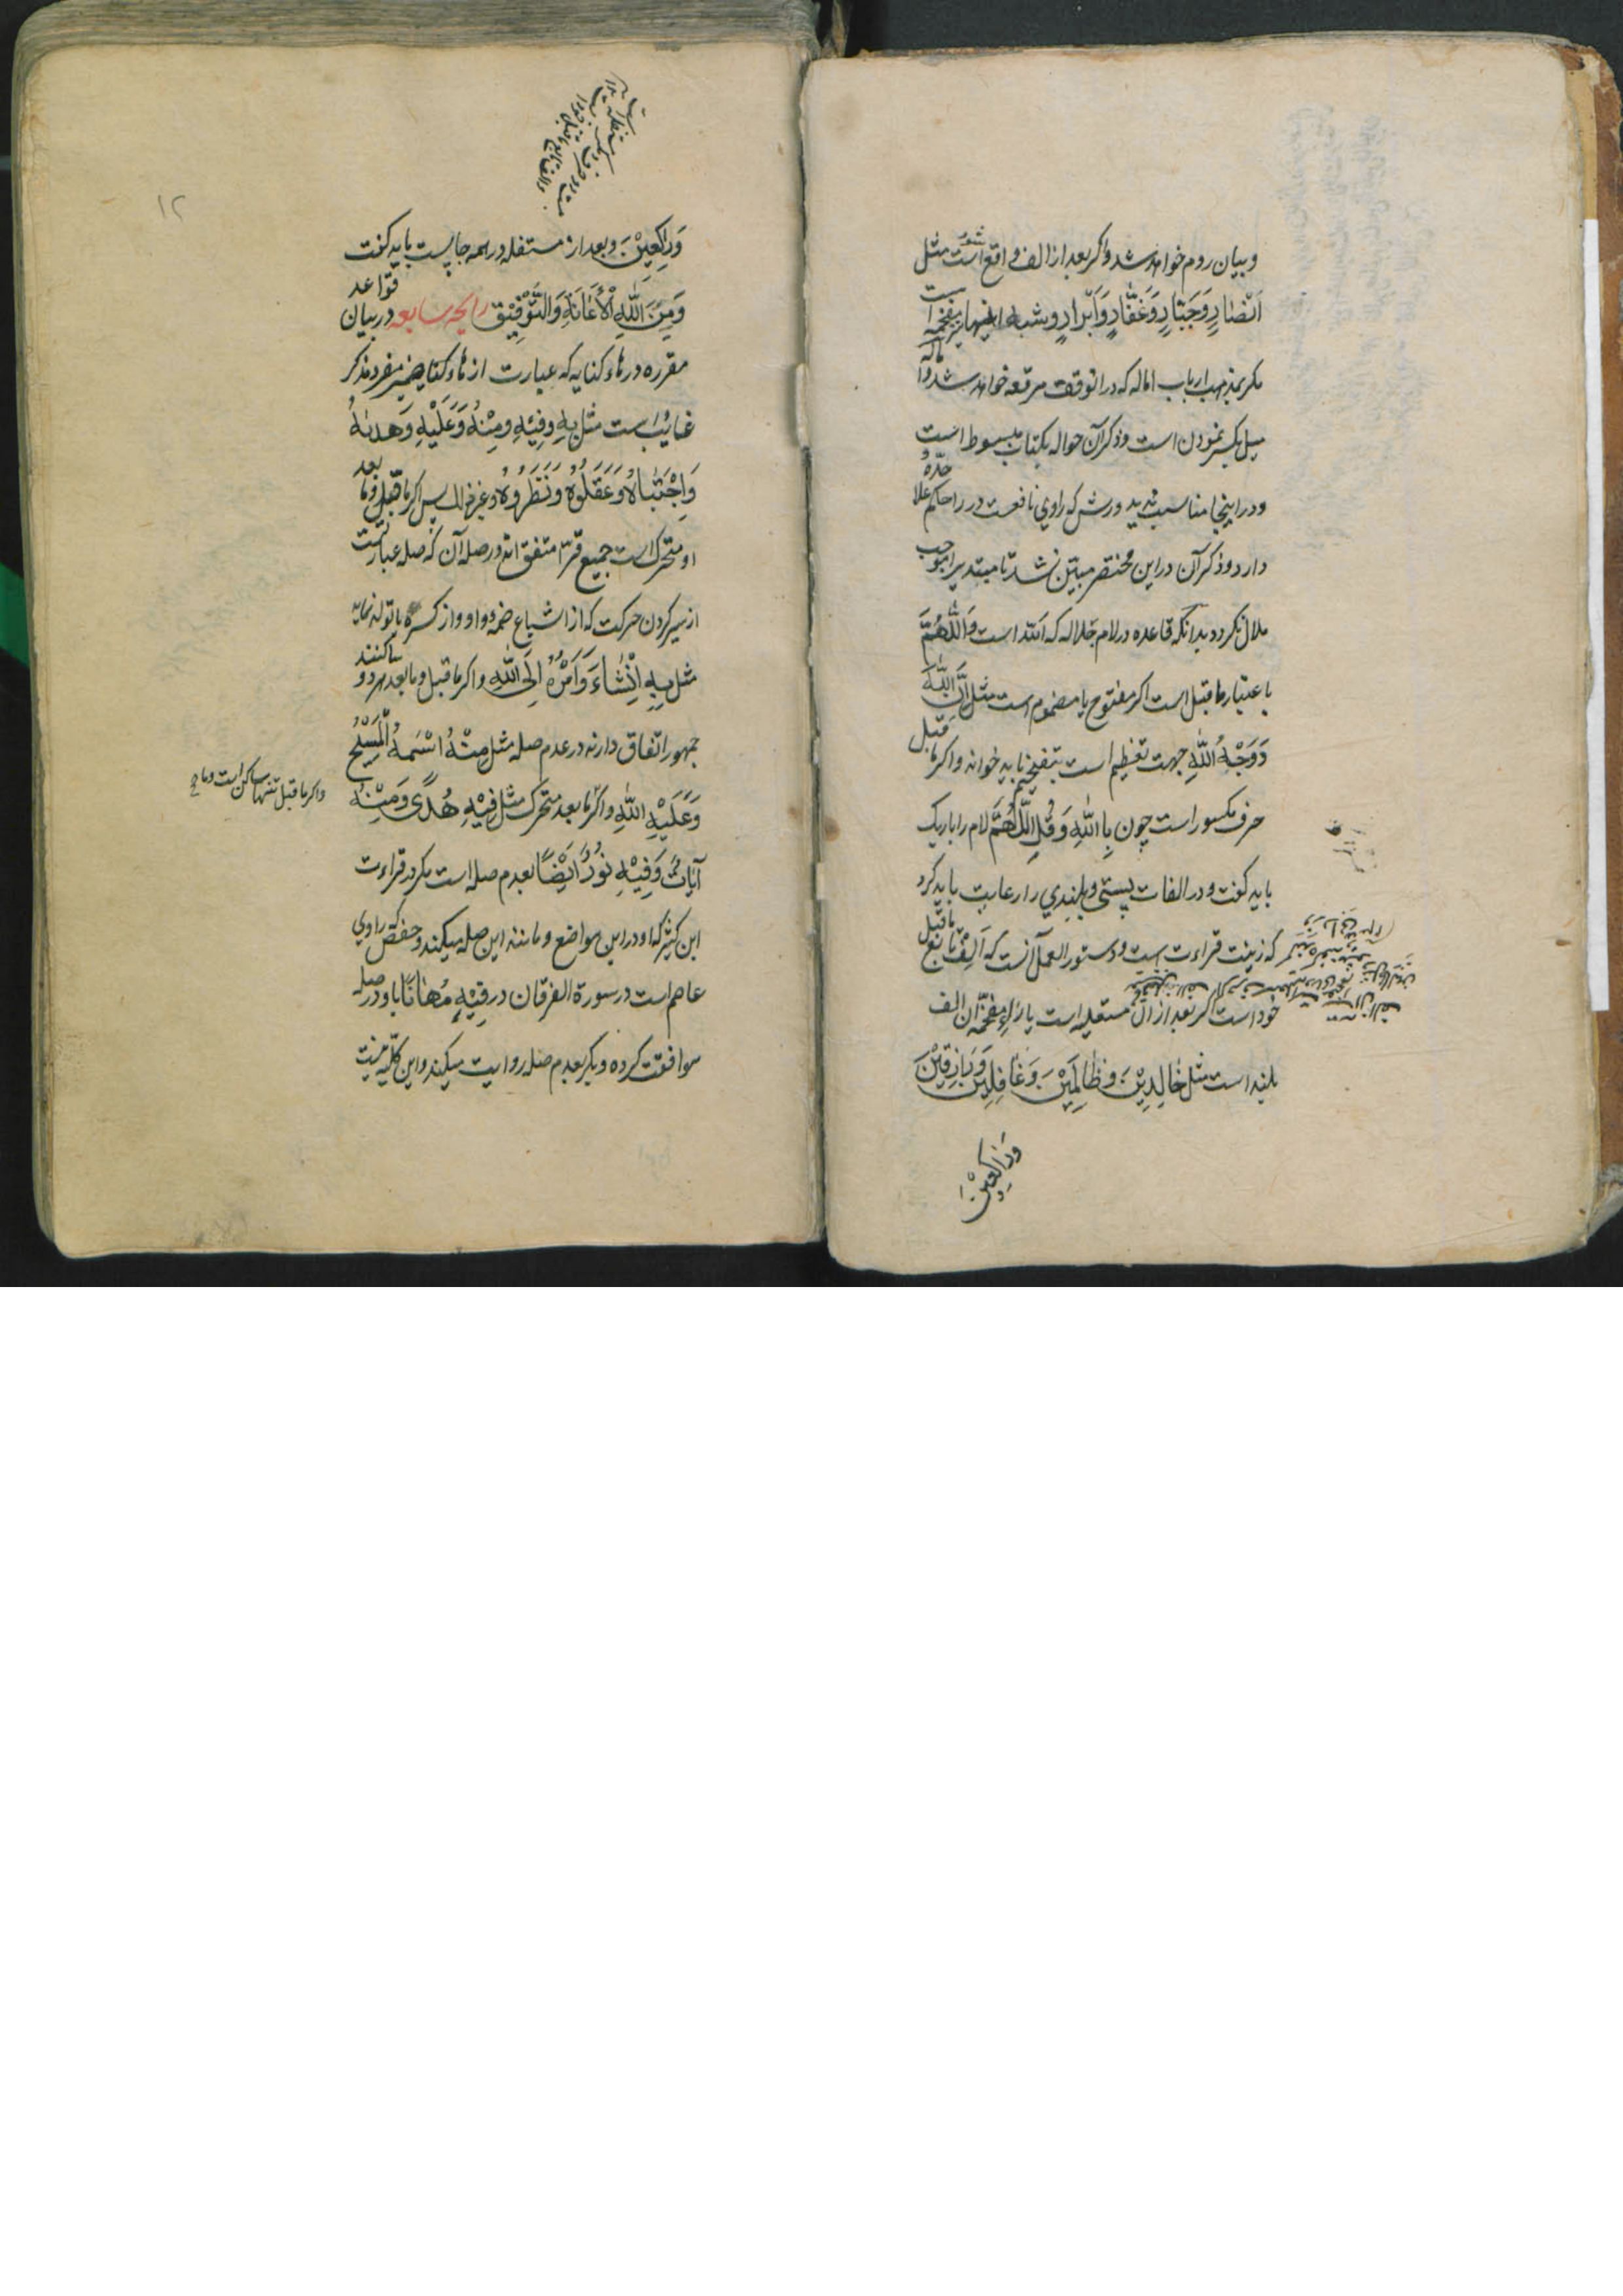 وبیان روم خواهد شد واگر بعد از الف واقع است مثل
اَنْصَارٍ وَجَبَّارٍ وَغَفَّارٍ وَاَبْرَارٍ وشبه اینها
مگر بمذهب ارباب اماله که در انوقت مرققه خواهد شد واماله
میل بکسر نمودن است وذکر آن حواله بکتاب مبسوط است
ودر اینجا مناسب ندید ورش که راوی نافعست در را حکم علاحده
دارد وذکر آن دراین مختصر مبیّن نشد تا مبتدی را موجب
ملال نگردد بدانکه قاعده در لام جلاله که اَللّٰه است وَاللّٰهُمَّ
باعتبار ماقبل است اگر مفتوح یا مضموم است مثل اِنَّ اللّٰهَ
وَوَجْهُ اللّٰهِ جهت تعظیم است بتفخیم باید خواند واگر ماقبل
حرف مکسور است چون بِاللّٰهِ وَقُلِ اللّٰهُمَّ لام را باریک
باید گفت ودر الفات پستی وبلندی را رعایت باید کرد
که زینت قراءت است ودستور العمل آنست که اَلِفْ تابع ماقبل
خود است اگر بعد از آن مستعلیه است یا راء مفخمه آن الف
بلند است مثل خَالِدِیْنَ وظَالِمِیْنَ وَغَافِلِیْنَ وَرَازِقِیْنَ
وَرَاكِعِیْنَ
۱۲
وَرَاكِعِیْنَ وبعد از مستفله در همه جا پست باید گفت
وَمِنَ اللّٰهِ الْاِعَانَةِ وَالتَّوْفِیْق رایحه سابعه در بیان قواعد
مقرره در هاء کنایه که عبارت از هاء کنایه ضمیر مفرد مذکر
غایب است مثل بِهِ وفِیْهِ ومِنْهُ وَعَلَیْهِ وَهَدٰیهُ
وَاجْتَبَاهُ وَعَقَلُوْهُ وَنَظَرُوهُ وغیر ذالک پس اگر ماقبل وما بعد
او متحرک است جمیع قرّا متفق اند در صله آن که صله عبارتست
از سیر کردن حرکت که از اشباع ضمه دو واو واز کسره یا تولد نماید
مثل بِهِ اِنْشَاءَ وَاَمْرُهُ اِلَی اللّٰهِ واگر ماقبل وما بعد هر دو ساکنند
جمهور اتفاق دارند در عدم صله مثل مِنْهُ اسْمُهُ الْمَسِیْحُ
واگر ماقبل تنها ساکن است وما
وَعَلَیْهِ اللّٰهِ واگر ما بعد متحرک مثل فِیْهِ هُدًی وَمِنْهُ
آیَاتٌ وَفِیْهِ نُوْرًا اَیْضًا بعدم صله است مگر در قراءت
ابن کثیر که او در این مواضع ومانند این صله میکند وحفص که راوی
عاصم است در سورة الفرقان در فِیْهٖ مُهَانًا با او در صله
موافقت کرده ودیگر بعدم صله روایت میکند واین کلّیه نیست